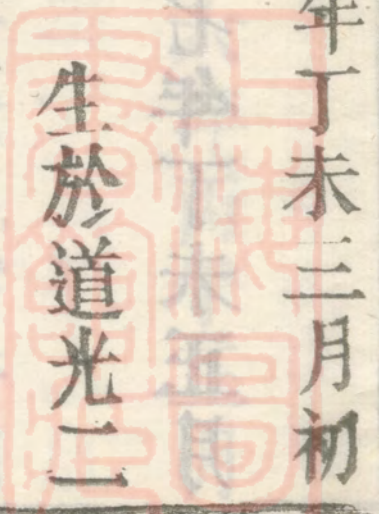 年丁未三月初
生於道光二